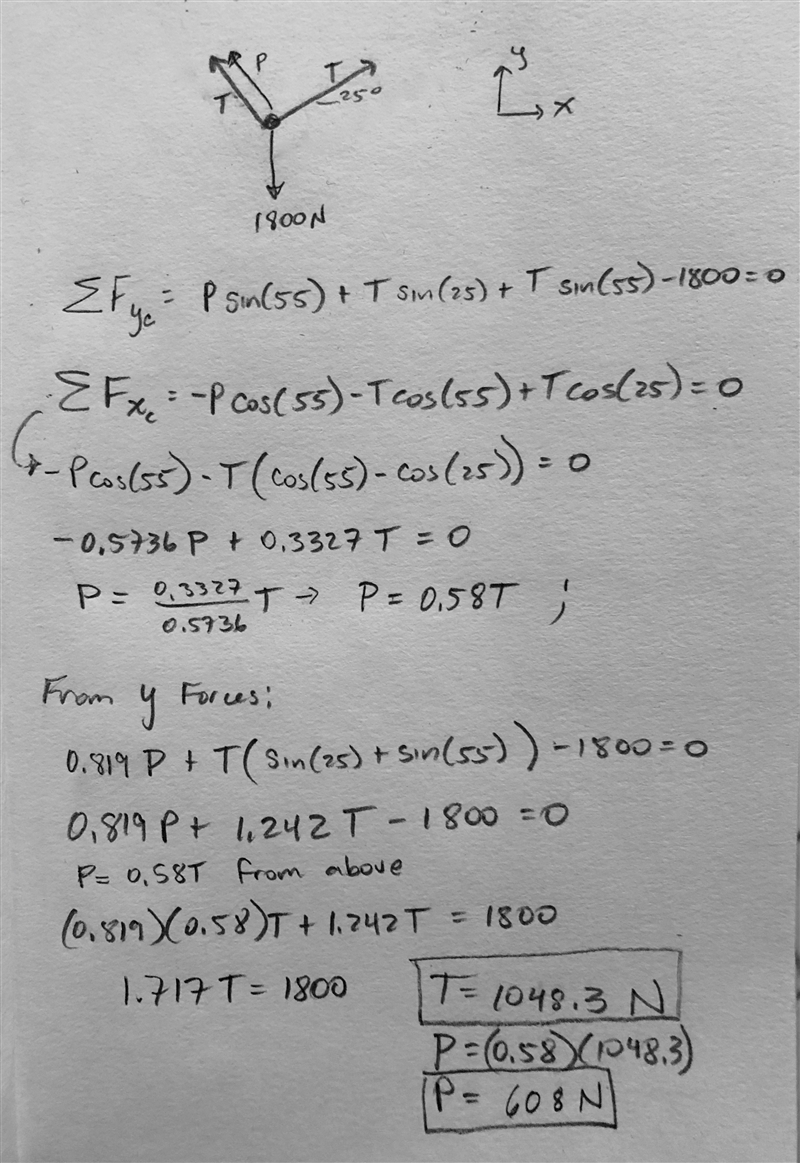 P
T
T
25°
y
x
1800N
ΣF_yc = P sin(55) + T sin(25) + T sin(55) - 1800 = 0
ΣF_xc = -P cos(55) - T cos(55) + T cos(25) = 0
-P cos(55) - T(cos(55) - cos(25)) = 0
-0.5736 P + 0.3327 T = 0
P = 0.3327/0.5736 T → P = 0.58T ;
From y Forces:
0.819 P + T(sin(25) + sin(55)) - 1800 = 0
0.819 P + 1.242 T - 1800 = 0
P = 0.58T from above
(0.819)(0.58)T + 1.242T = 1800
1.717 T = 1800
T = 1048.3 N
P = (0.58)(1048.3)
P = 608 N